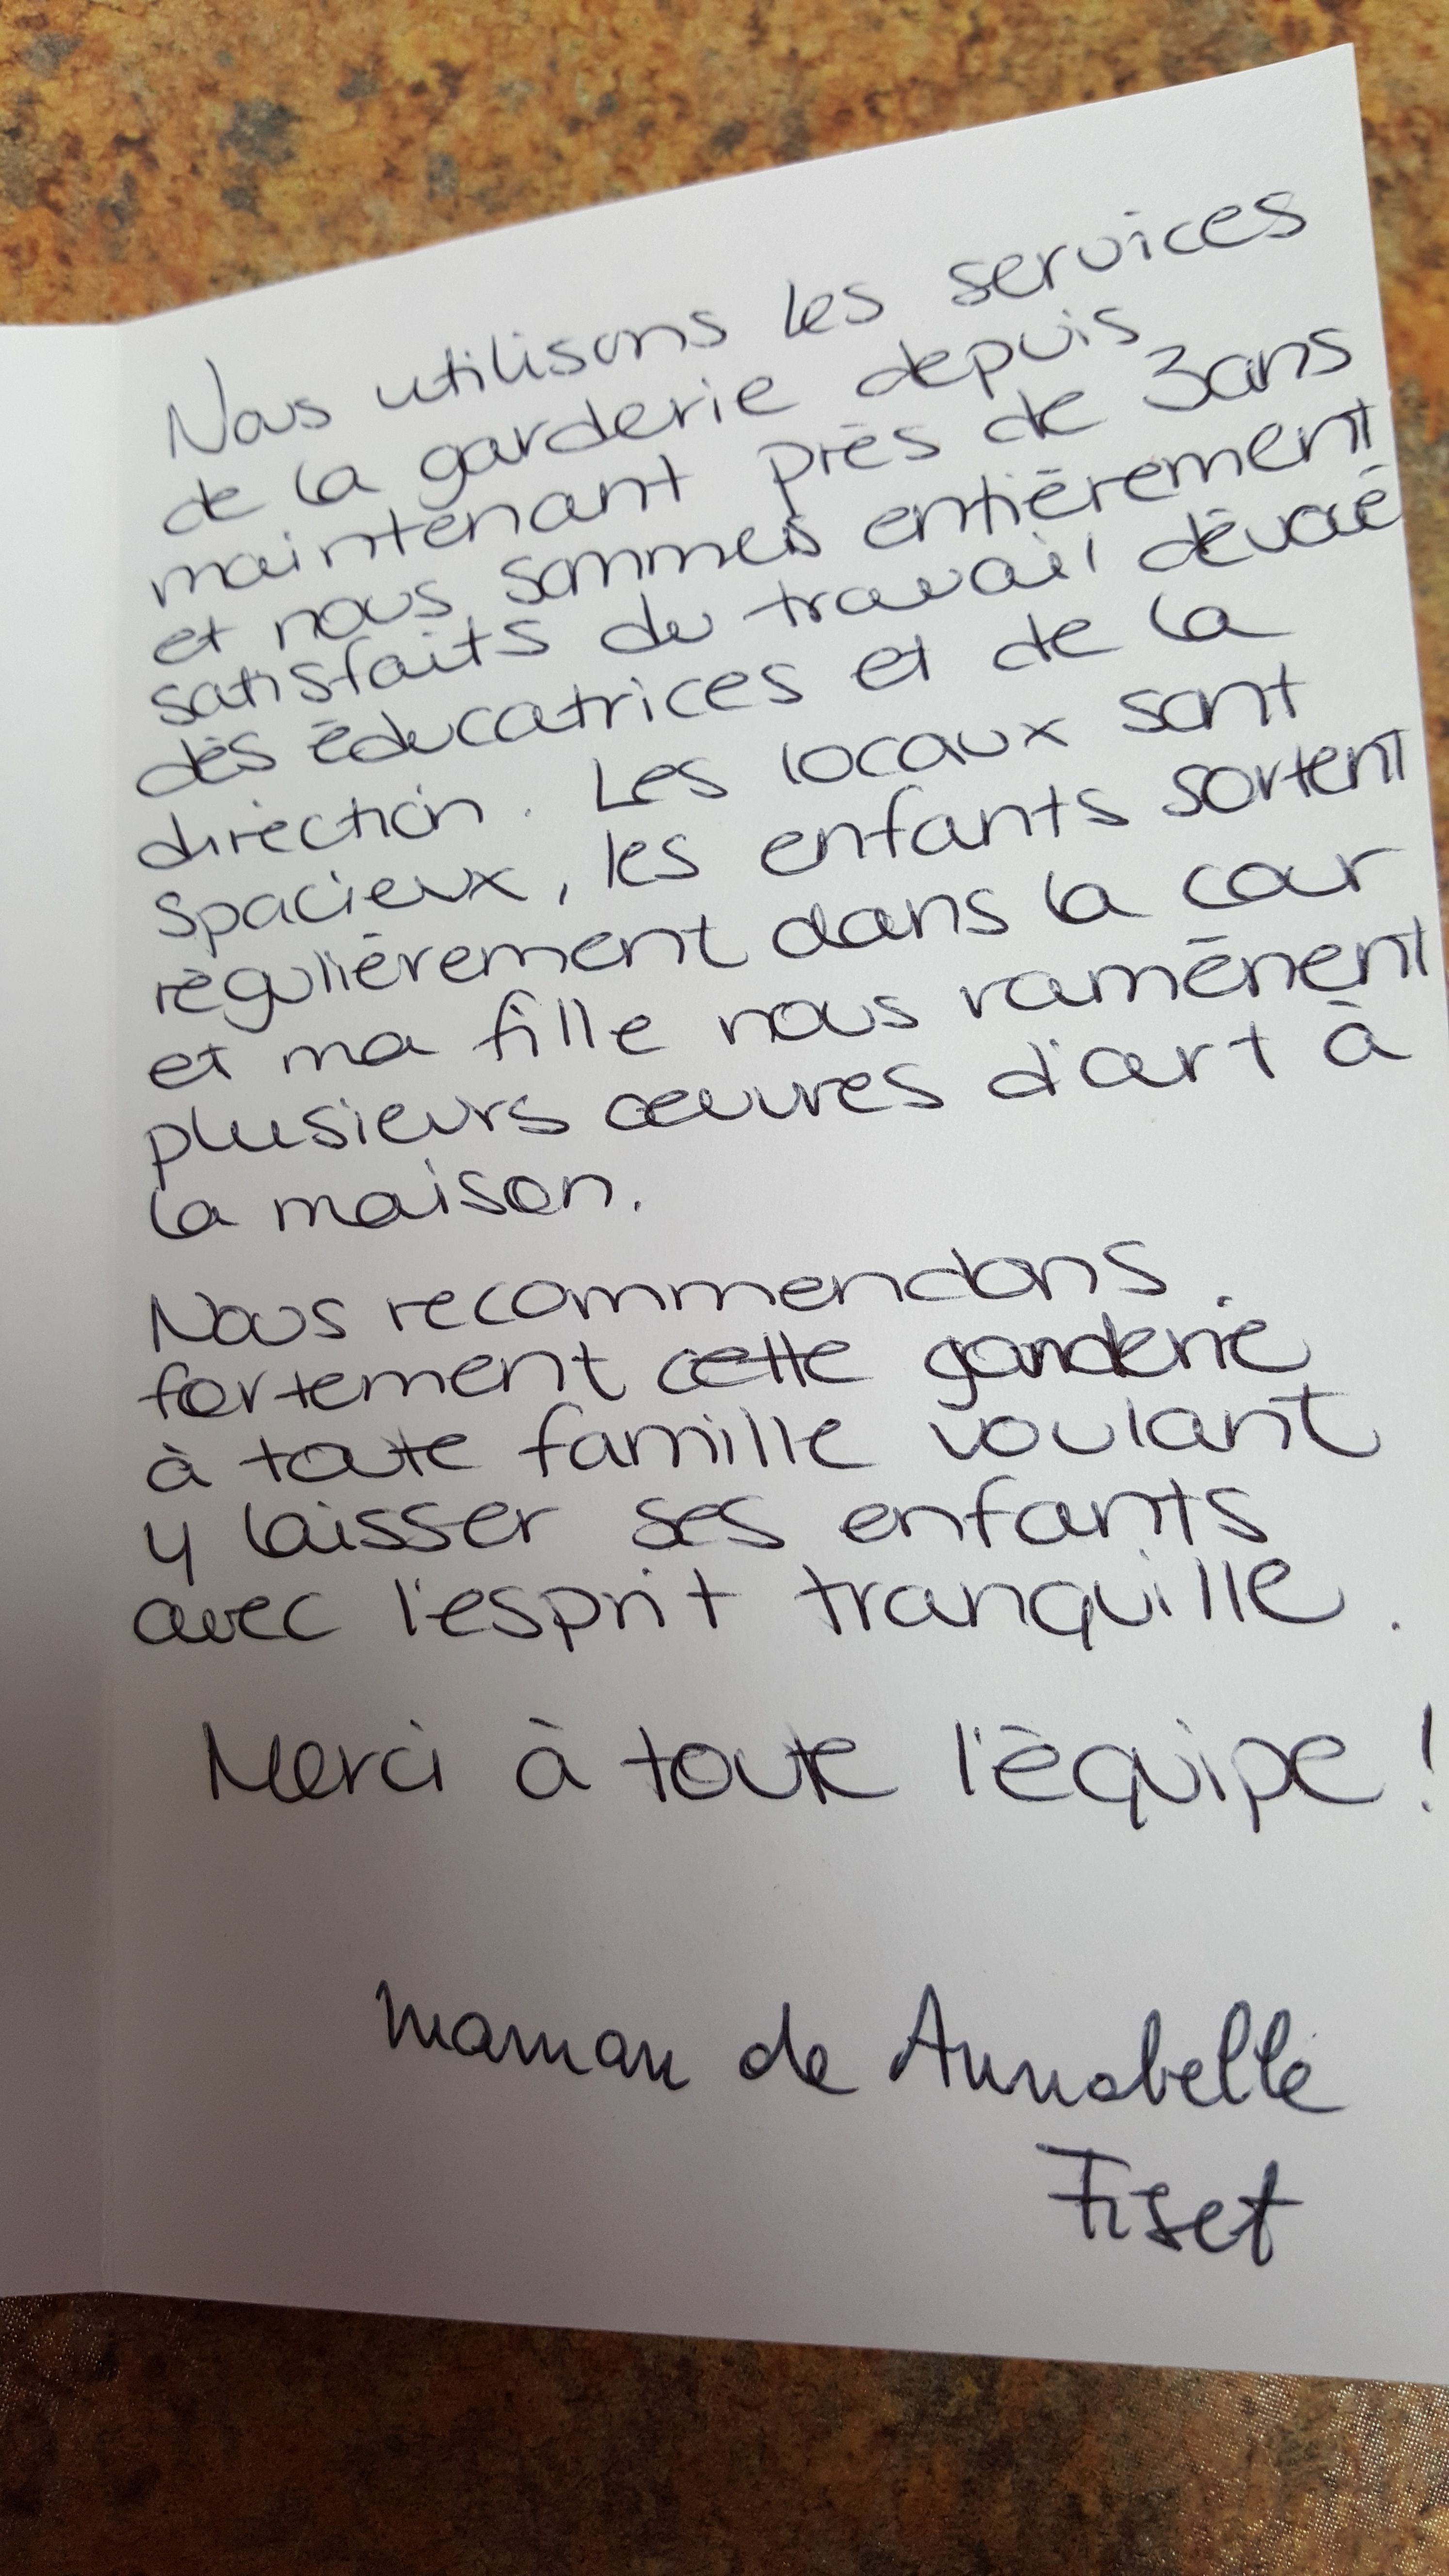 Nous utilisons les services
de la garderie depuis
maintenant près de 3ans
et nous sommes entièrement
satisfaits du travail dévoué
des éducatrices et de la
direction. Les locaux sont
spacieux, les enfants sortent
régulièrement dans la cour
et ma fille nous ramènent
plusieurs œuvres d'art à
la maison.
Nous recommendons
fortement cette garderie
à toute famille voulant
y laisser ses enfants
avec l'esprit tranquille.
Merci à toute l'équipe!
maman de Annabelle
Fiset